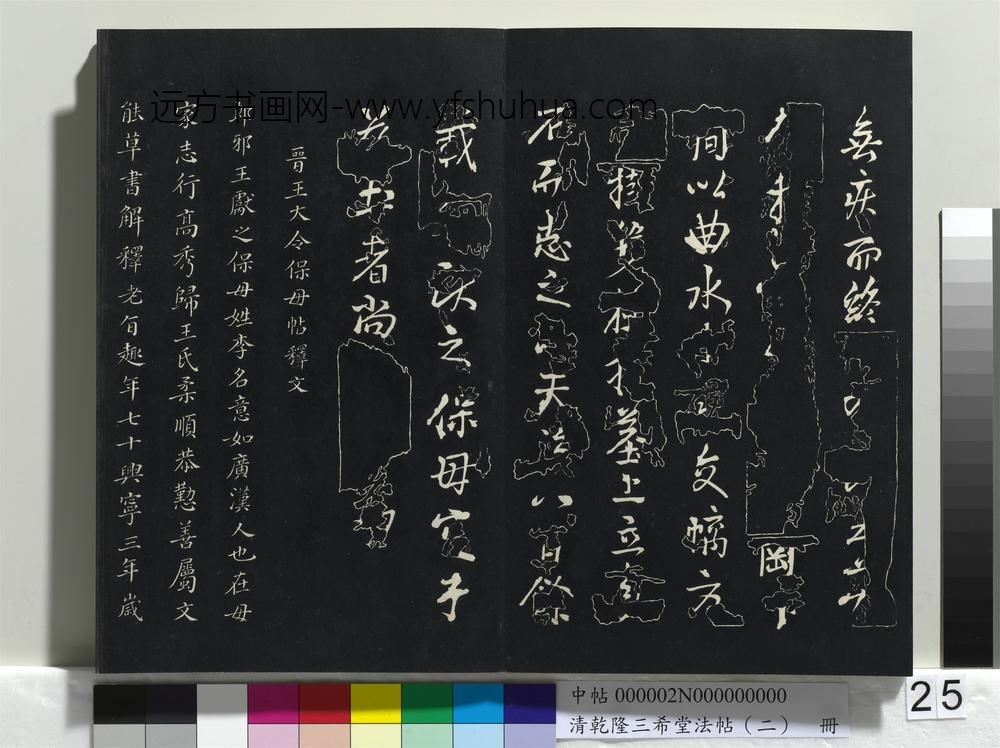 远方书画网-www.yfshuhua.com
無疾而終
岡下
間以曲水 交螭方
樹 墓上立貞
石而志之 天 八百餘
載 獻之保母宮于
茲土者尚
晉王大令保母帖釋文
郎邪王獻之保母姓李名意如廣漢人也在母
家志行高秀歸王氏柔順恭懃善屬文
能草書解釋老旨趣年七十興寧三年歲
中帖 000002N000000000
清乾隆三希堂法帖（二） 册
25